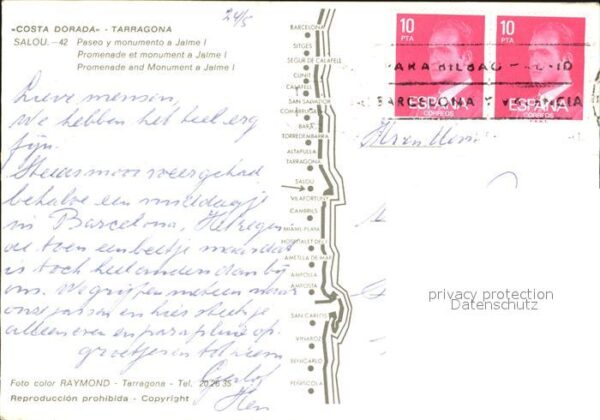 «COSTA DORADA» - TARRAGONA
SALOU.-42 Paseo y monumento a Jaime I
Promenade et monument a Jaime I
Promenade and Monument a Jaime I
24/5
Lieve mensen,
We hebben het heel erg
fijn.
Steeds mooi weer gehad
behalve een middagje
in Barcelona, Het regen
de toen een beetje maar dat
is toch heel anders dan bij
ons. We grijpen meteen naar
onze jassen en hier steek je
alleen even en paraplu op.
groetjes en tot ziens
Foto color RAYMOND - Tarragona - Tel. 20 26 35
Reproducción prohibida - Copyright
BARCELONA
SITGES
SEGUR DE CALAFELL
CUNIT
CALAFELL
SAN SALVADOR
COMARRUGA
BARÁ
TORREDEMBARRA
ALTAFULLA
TARRAGONA
SALOU
VILAFORTUNY
CAMBRILS
MIAMI PLAYA
HOSPITALET DEL I.
AMETLLA DE MAR
AMPOLLA
AMPOSTA
SAN CARLOS
VINAROZ
BENICARLO
PEÑISCOLA
10 PTA
ESPAÑA
CORREOS
10 PTA
ESPAÑA
CORREOS
PARA BILBAO
BARCELONA Y VALENCIA
privacy protection
Datenschutz